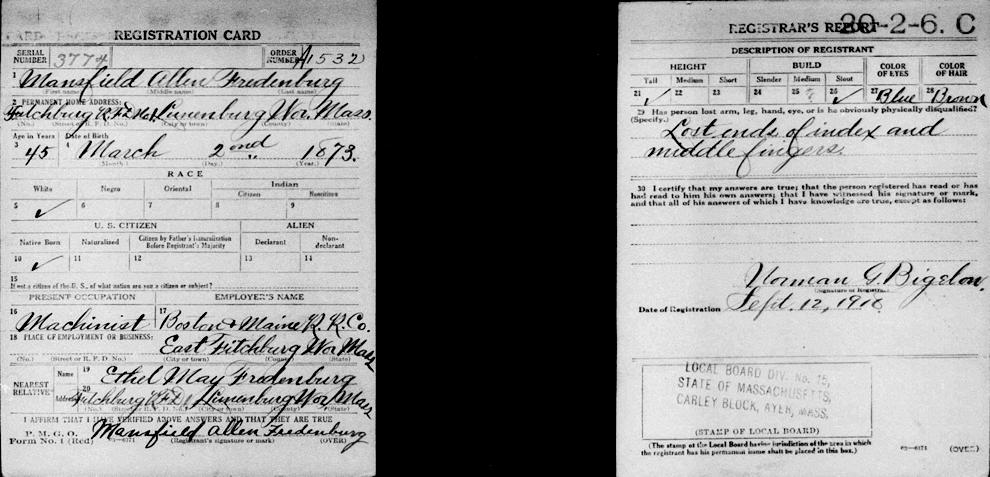 REGISTRATION CARD
SERIAL NUMBER 3774 ORDER NUMBER A1532
1 Mansfield Allen Fredenburg
(First name) (Middle name) (Last name)
2 PERMANENT HOME ADDRESS:
Fitchburg R.F.D. Lunenburg Wor. Mass.
(No.) (Street or R. F. D. No.) (City or town) (County) (State)
Age in Years Date of Birth
3 45 4 March 2nd 1873.
(Month.) (Day.) (Year.)
RACE
White Negro Oriental Indian
Citizen Noncitizen
5 ✓ 6 7 8 9
U. S. CITIZEN ALIEN
Native Born Naturalized Citizen by Father's Naturalization Before Registrant's Majority Declarant Non-declarant
10 ✓ 11 12 13 14
15
If not a citizen of the U. S., of what nation are you a citizen or subject?
PRESENT OCCUPATION EMPLOYER'S NAME
16 Machinist 17 Boston & Maine R. R. Co.
18 PLACE OF EMPLOYMENT OR BUSINESS:
East Fitchburg Wor Mass
(No.) (Street or R. F. D. No.) (City or town) (County) (State)
NEAREST RELATIVE Name 19 Ethel May Fredenburg
Address 20 Fitchburg R.F.D. 1 Lunenburg Wor Mass
(No.) (Street or R. F. D. No.) (City or town) (County) (State)
I AFFIRM THAT I HAVE VERIFIED ABOVE ANSWERS AND THAT THEY ARE TRUE
P. M. G. O.
Form No. 1 (Red) 03—6171 Mansfield Allen Fredenburg
(Registrant's signature or mark) (OVER)
REGISTRAR'S REPORT 20-2-6. C
DESCRIPTION OF REGISTRANT
HEIGHT BUILD COLOR OF EYES COLOR OF HAIR
Tall Medium Short Slender Medium Stout
21 ✓ 22 23 24 25 26 ✓ 27 Blue 28 Brown
29 Has person lost arm, leg, hand, eye, or is he obviously physically disqualified?
(Specify.)
Lost ends of index and
middle fingers.
30 I certify that my answers are true; that the person registered has read or has
had read to him his own answers; that I have witnessed his signature or mark,
and that all of his answers of which I have knowledge are true, except as follows:
Norman G. Bigelow.
(Signature of Registrar)
Date of Registration Sept. 12, 1918
LOCAL BOARD DIV. No. 15,
STATE OF MASSACHUSETTS,
CARLEY BLOCK, AYER, MASS.
(STAMP OF LOCAL BOARD)
(The stamp of the Local Board having jurisdiction of the area in which
the registrant has his permanent home shall be placed in this box.)
03—6171 (OVER)